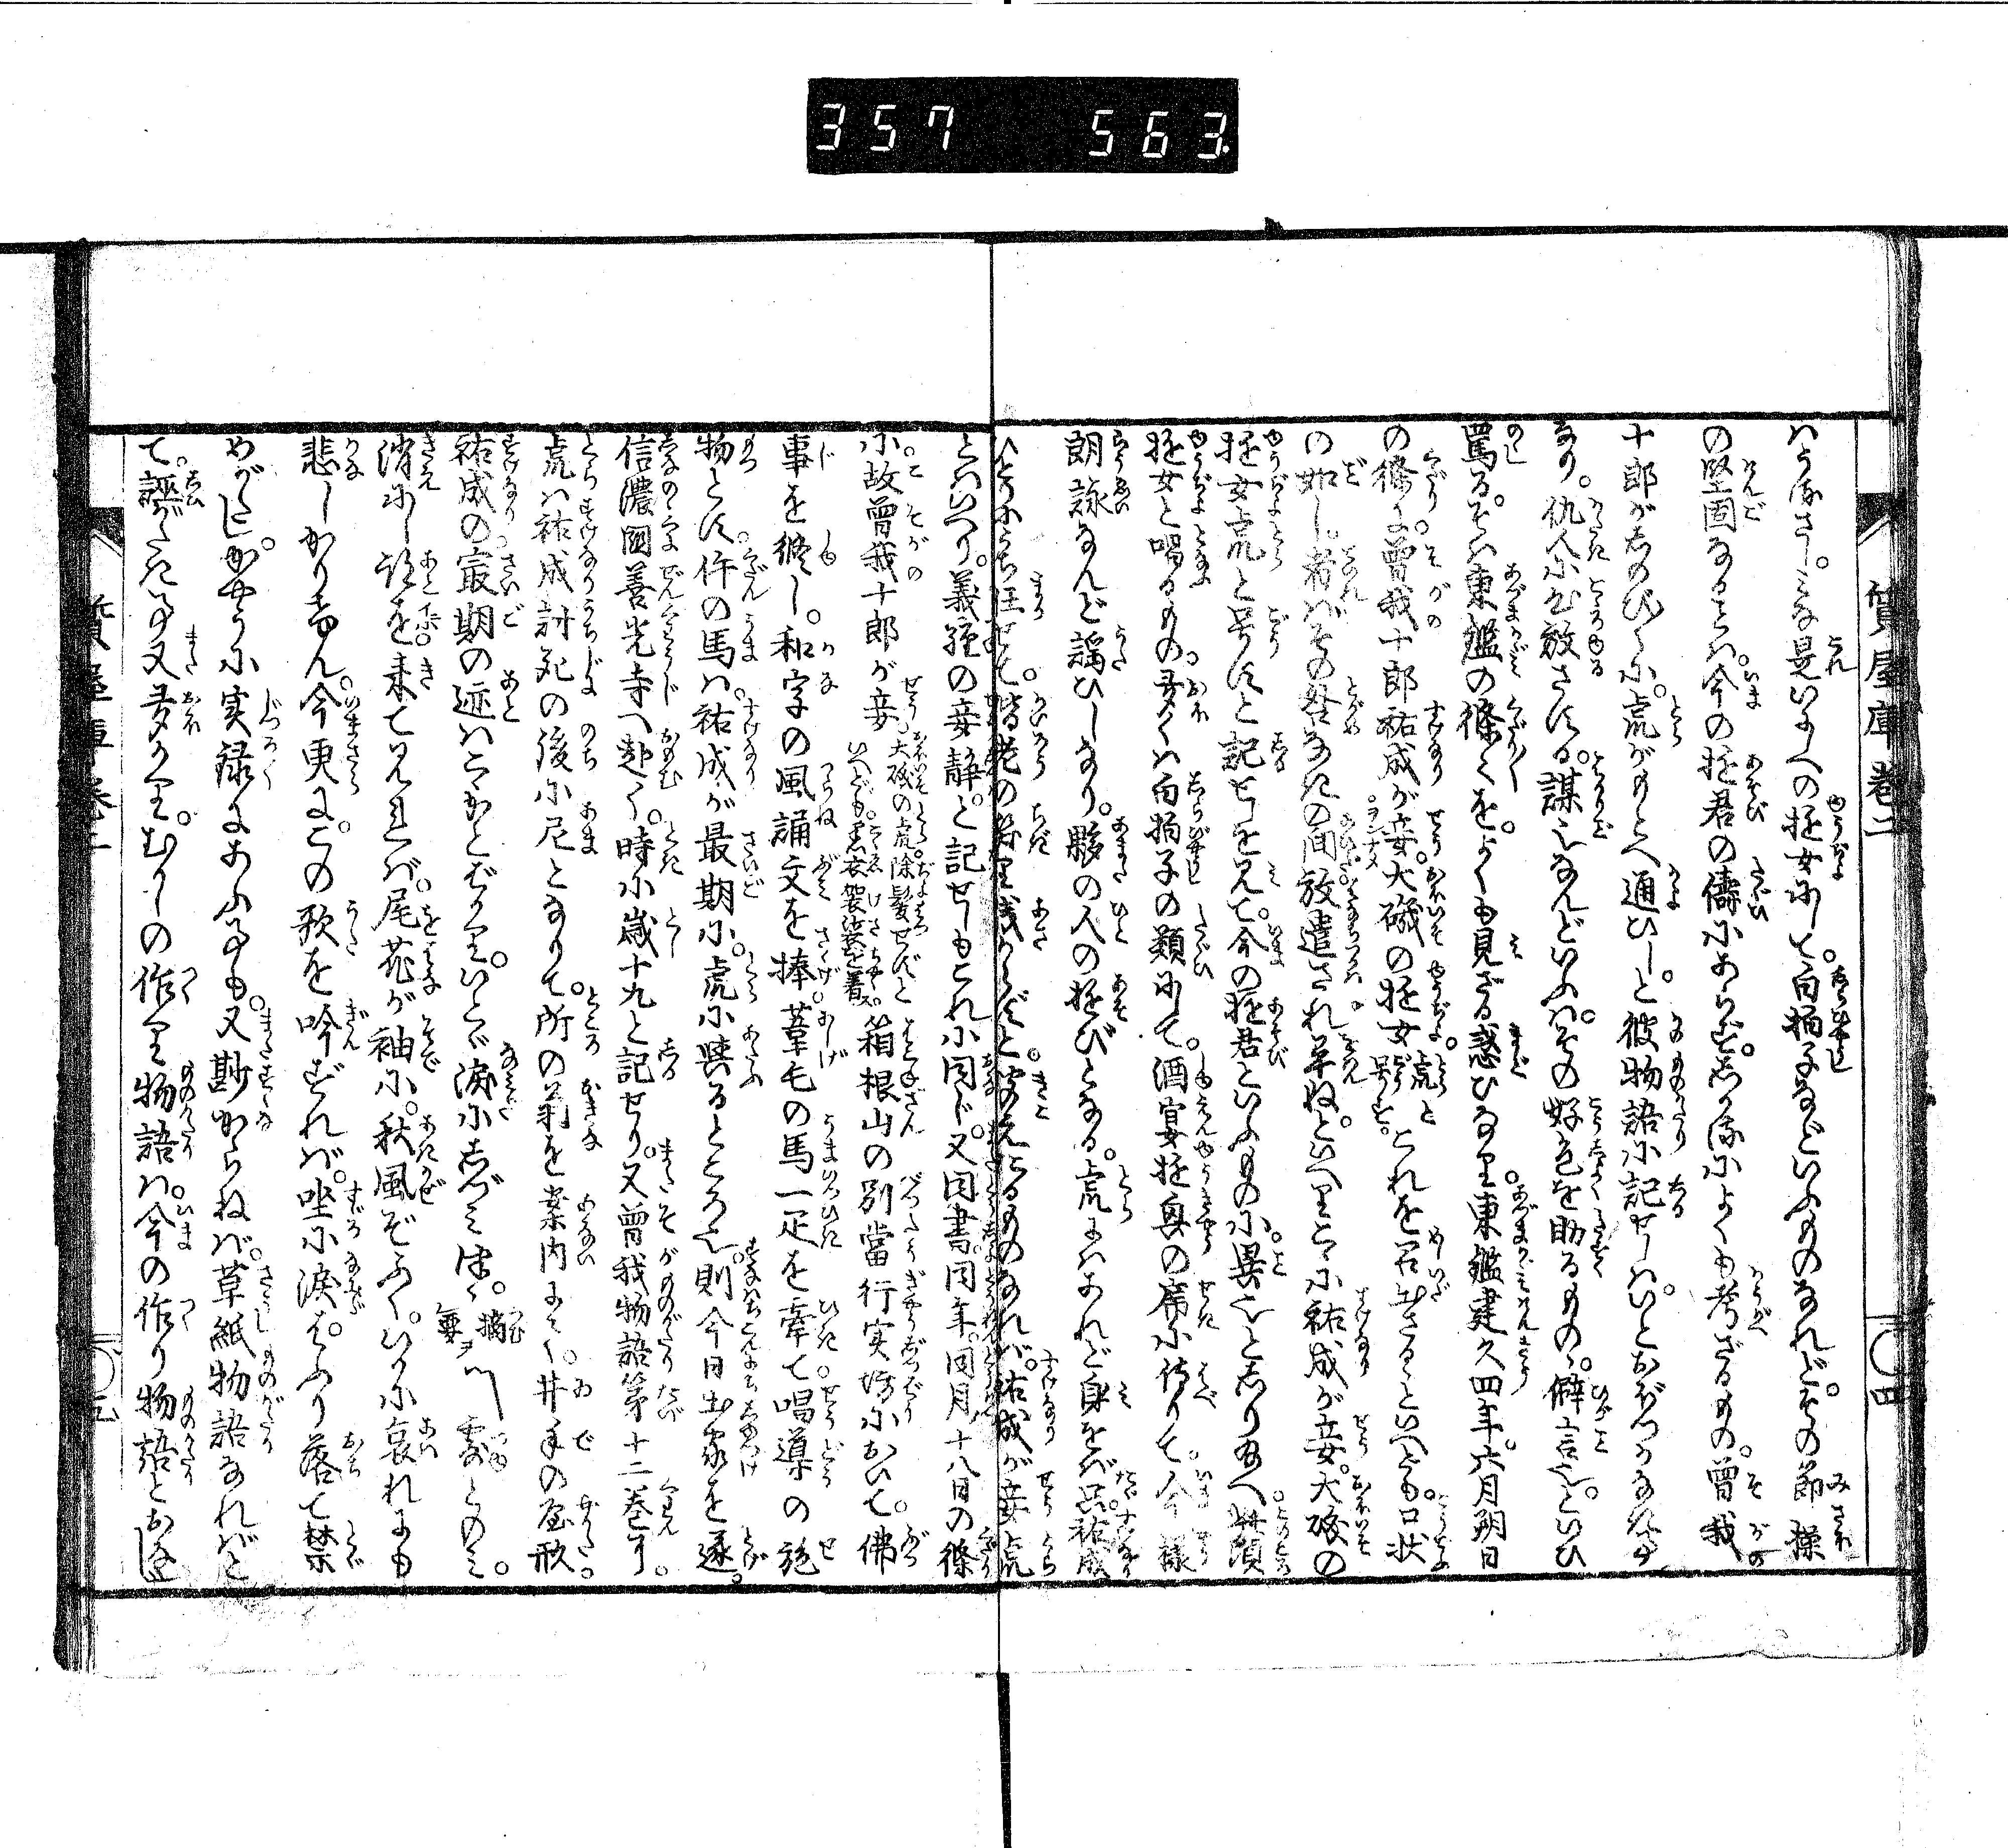 357 563
質屋庫巻二
○四
はうねさし。こは是いにしへの遊女にして。白拍子などいふものなれど。その節操
の堅固なることは。今の遊君の儔にあらず。しかるによくも考ざるもの。曾我
十郎がしのび〱に。虎がもとへ通ひしと。彼物語に記せしは。いとおぼつかなき事
なり。仇人に心放さする。謀也なんどいふは。その好色を助るもの。僻言也。といひ
罵る。そは東鑑の條〱を。よくも見ざる惑ひなり。東鑑建久四年。六月朔日
の條に。曾我十郎祐成が妾。大磯の遊女。虎と号ず。これを召出さるゝといへども。口状
の如し。者ばその咎なきの間。放遣され畢ぬ。といへりこゝに祐成が妾。大磯の
遊女虎と号すと記せしを見て。今の遊君といふものに。異也としり給へ。当頃
遊女と唱るもの。多くは白拍子の類にして。酒宴遊興の席に侍りて。今様
朗詠なんど謡ひしなり。夥の人の遊びとなる。虎にはあれど身をば只祐成
ひとりにうち任せて。偕老の契り浅からずと。聞えたるものなれば。祐成が妾虎
とはいへり。義経の妾静。と記せしもこれに同じ。又同書。同年。同月。十八日の條
に。故曾我十郎が妾。大磯の虎除髪せずといへども。黒衣袈裟を着ス。箱根山の別當行実坊において。佛
事を修し。和字の風誦文を捧。葦毛の馬一疋を牽て唱導の施
物とす。件の馬は。祐成が最期に。虎に與るところ也。則今日出家を遂。
信濃國善光寺へ赴く。時に歳十九と記せり。又曾我物語第十二巻に。
虎は祐成討死の後に尼となりて。所の翁を案内にて。井手の屋形。
祐成の最期の迹はこゝかとばかり。いとゞ涙にしづみ侍。摘要ヲ 露とのみ。
消にし跡を。来て見れば。尾花が袖に。秋風ぞふく。いかに哀れにも
悲しかりけん。今更に。この歌を吟ずれば。坐に涙ぞ。ふり落て禁
めがたし。かやうに実録にあふ事も。又尠からねば。草紙物語なればと
て。誣がたき事又多かり。むかしの作り物語は。今の作り物語とおなじ
質屋庫巻二
○五